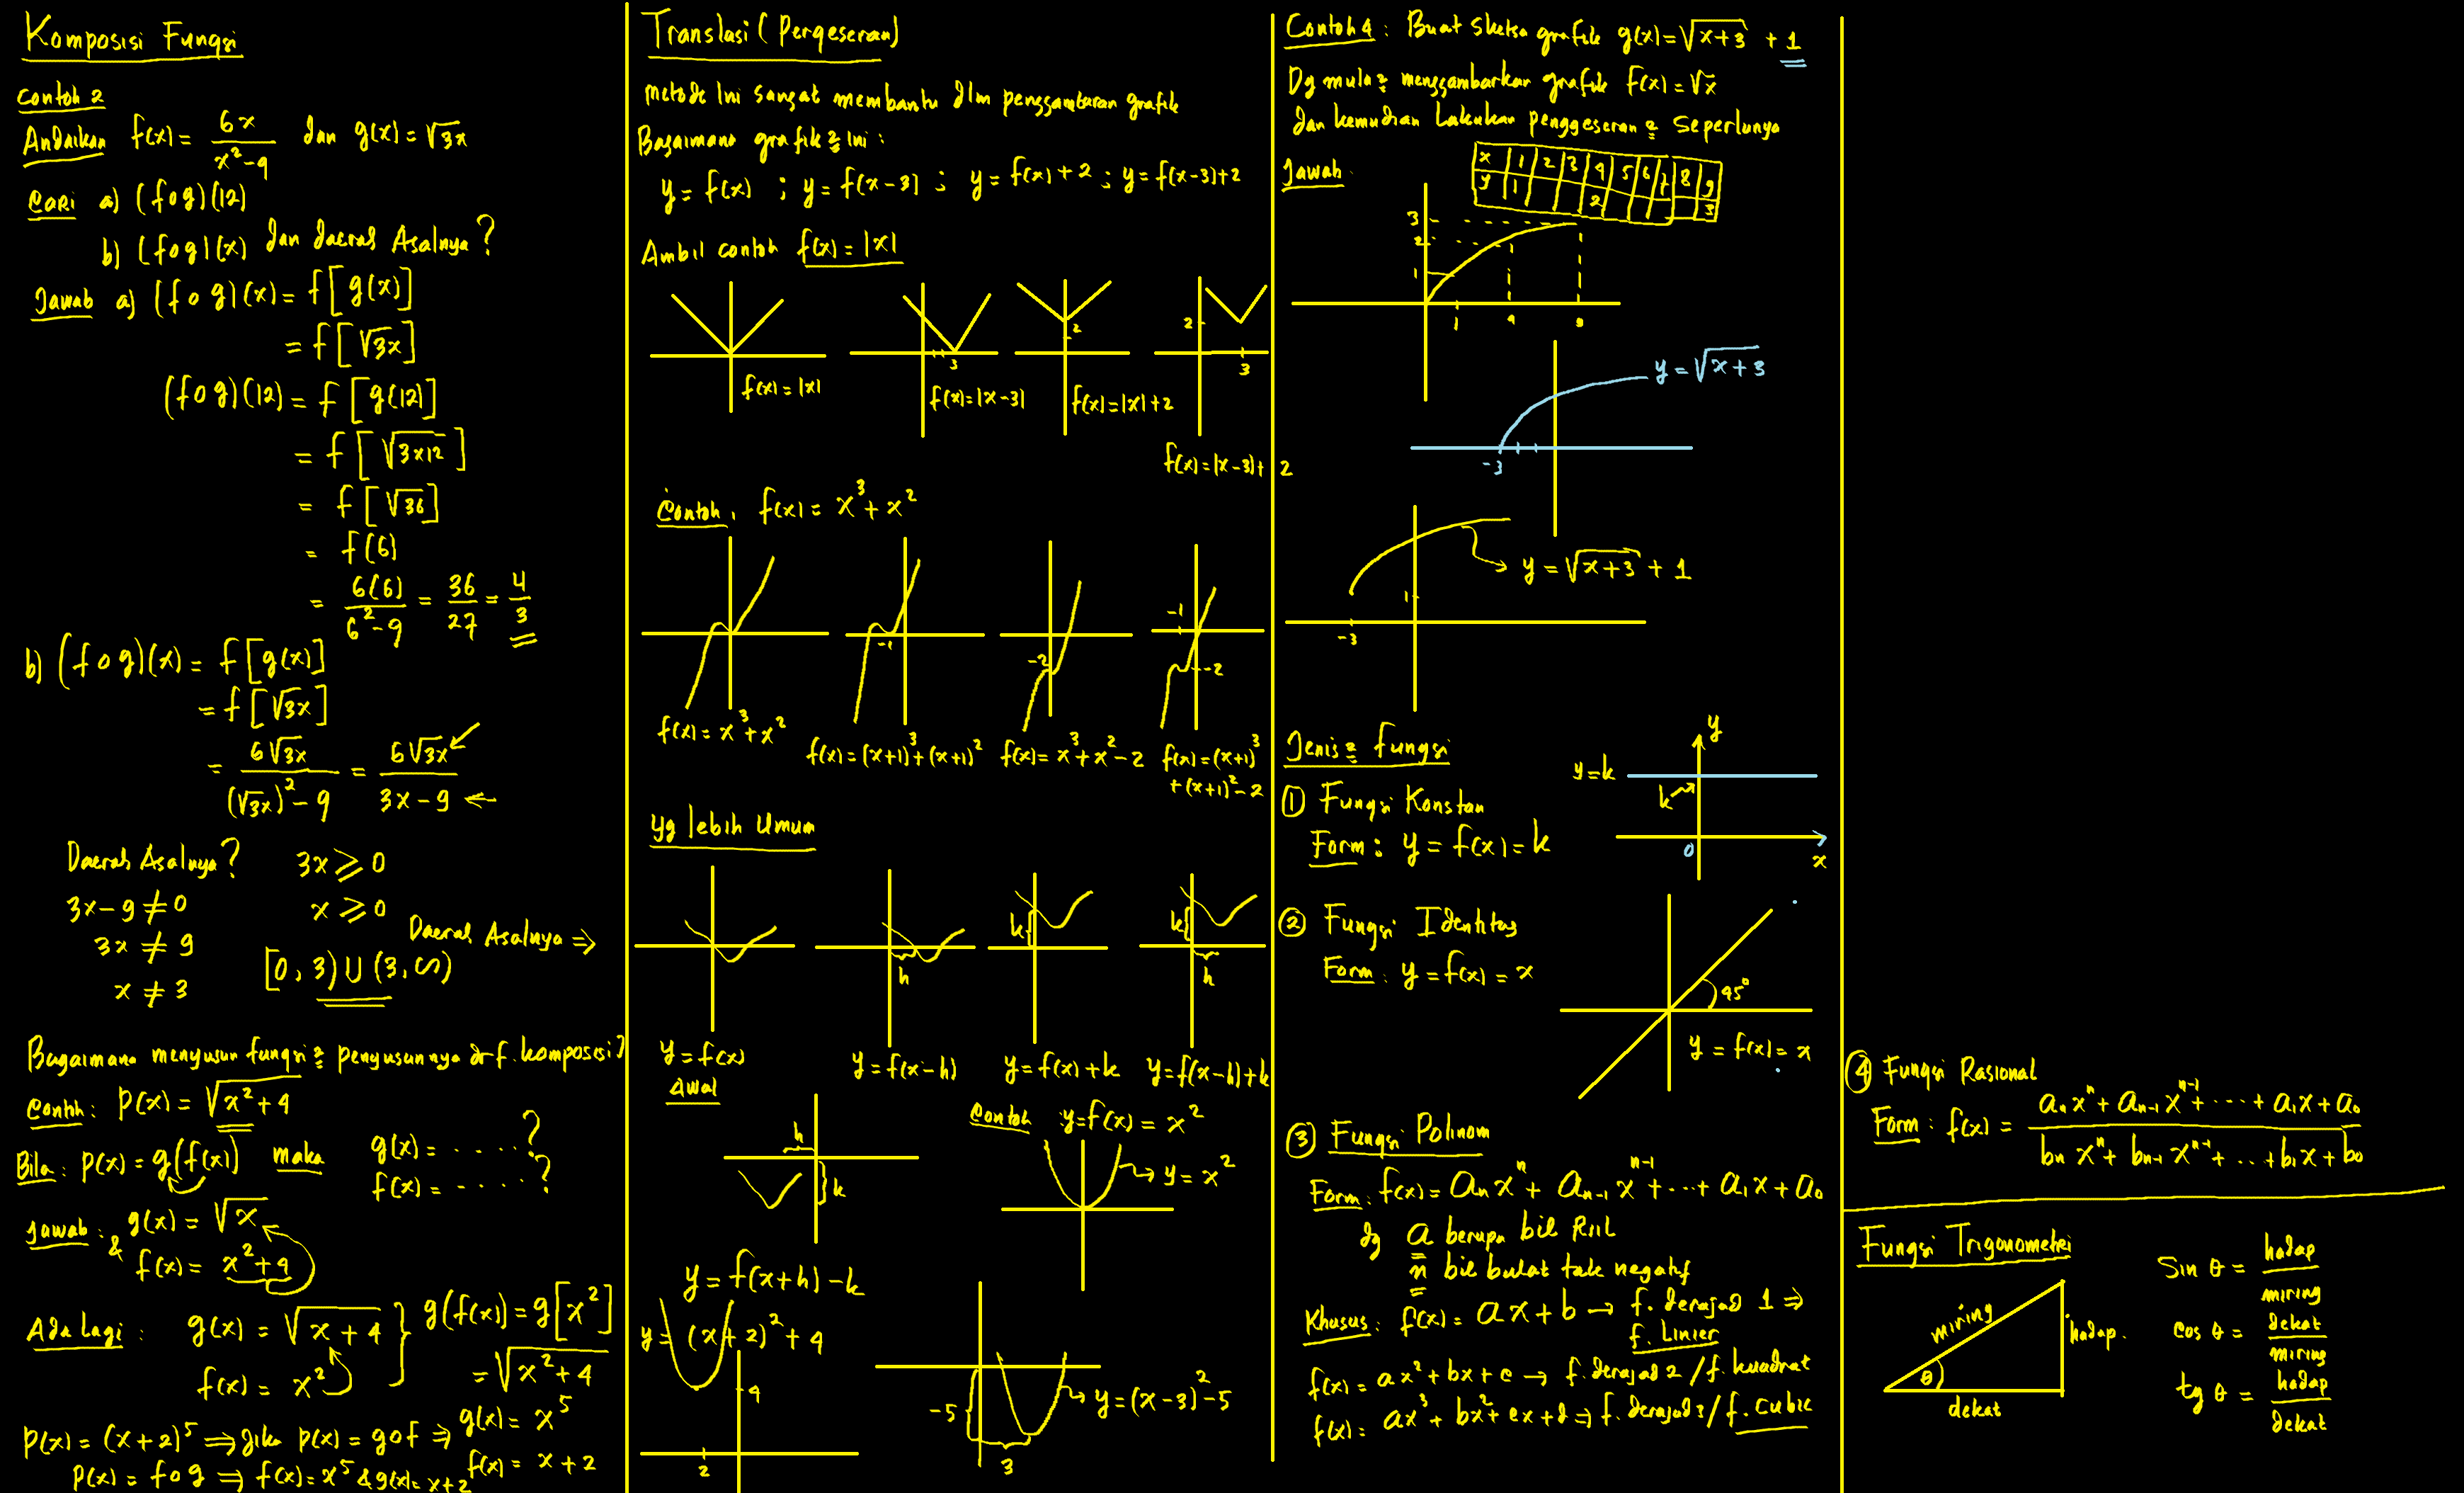 Komposisi Fungsi
Contoh 2
Andaikan f(x) = 6x / x² - 9 dan g(x) = √3x
Cari a) (fog)(12)
b) (fog)(x) dan daerah Asalnya?
Jawab a) (fog)(x) = f[g(x)]
= f[√3x]
(fog)(12) = f[g(12)]
= f[√3x12]
= f[√36]
= f(6)
= 6(6) / 6² - 9 = 36/27 = 4/3
b) (fog)(x) = f[g(x)]
= f[√3x]
= 6√3x / (√3x)² - 9 = 6√3x / 3x - 9
Daerah Asalnya? 3x ≥ 0
3x - 9 ≠ 0 x ≥ 0
3x ≠ 9 Daerah Asalnya ⇒
x ≠ 3 [0, 3) U (3, ∞)
Bagaimana menyusun fungsi2 penyusunnya dr f. komposisi?
Contoh: P(x) = √x² + 4
Bila: P(x) = g(f(x)) maka g(x) = .....?
f(x) = .....?
Jawab: g(x) = √x
& f(x) = x² + 4
Ada lagi: g(x) = √x + 4 } g(f(x)) = g[x²]
f(x) = x² = √x² + 4
P(x) = (x + 2)⁵ ⇒ jika P(x) = gof ⇒ g(x) = x⁵
f(x) = x + 2
P(x) = fog ⇒ f(x) = x⁵ & g(x) = x + 2
Translasi (Pergeseran)
metode ini sangat membantu dlm penggambaran grafik
Bagaimana grafik2 ini:
y = f(x) ; y = f(x-3) ; y = f(x) + 2 ; y = f(x-3) + 2
Ambil contoh f(x) = |x|
3 2 2 3
f(x) = |x| f(x) = |x-3| f(x) = |x| + 2 f(x) = |x-3| + 2
Contoh, f(x) = x³ + x²
-1 -2 -1 -2
f(x) = x³ + x² f(x) = (x+1)³ + (x+1)² f(x) = x³ + x² - 2 f(x) = (x+1)³
+ (x+1)² - 2
yg lebih Umum
h k k h
y = f(x) y = f(x-h) y = f(x) + k y = f(x-h) + k
Awal
h k
Contoh : y = f(x) = x²
y = x²
y = f(x+h) - k
y = (x+2)² + 4
4
2
-5 3
y = (x-3)² - 5
Contoh 4: Buat sketsa grafik g(x) = √x+3 + 1
Dg mula2 menggambarkan grafik f(x) = √x
dan kemudian Lakukan penggeseran2 seperlunya
Jawab
x 1 2 3 4 5 6 7 8 9
y 1 2 3
3
2
1
1 4 9
y = √x+3
-3
y = √x+3 + 1
1
-3
Jenis2 fungsi
① Fungsi Konstan
Form: y = f(x) = k
y = k
y
k
0
x
② Fungsi Identitas
Form: y = f(x) = x
45°
y = f(x) = x
③ Fungsi Polinom
Form: f(x) = aₙxⁿ + aₙ₋₁xⁿ⁻¹ + .... + a₁x + a₀
dg a berupa bil Riil
n bil bulat tak negatif
Khusus: f(x) = ax + b → f. derajad 1 ⇒
f. Linier
f(x) = ax² + bx + c → f. derajad 2 / f. kuadrat
f(x) = ax³ + bx² + cx + d ⇒ f. derajad 3 / f. cubic
④ Fungsi Rasional
Form: f(x) = aₙxⁿ + aₙ₋₁xⁿ⁻¹ + .... + a₁x + a₀ / bₙxⁿ + bₙ₋₁xⁿ⁻¹ + ... + b₁x + b₀
Fungsi Trigonometri
miring
hadap.
θ
dekat
Sin θ = hadap / miring
cos θ = dekat / miring
tg θ = hadap / dekat